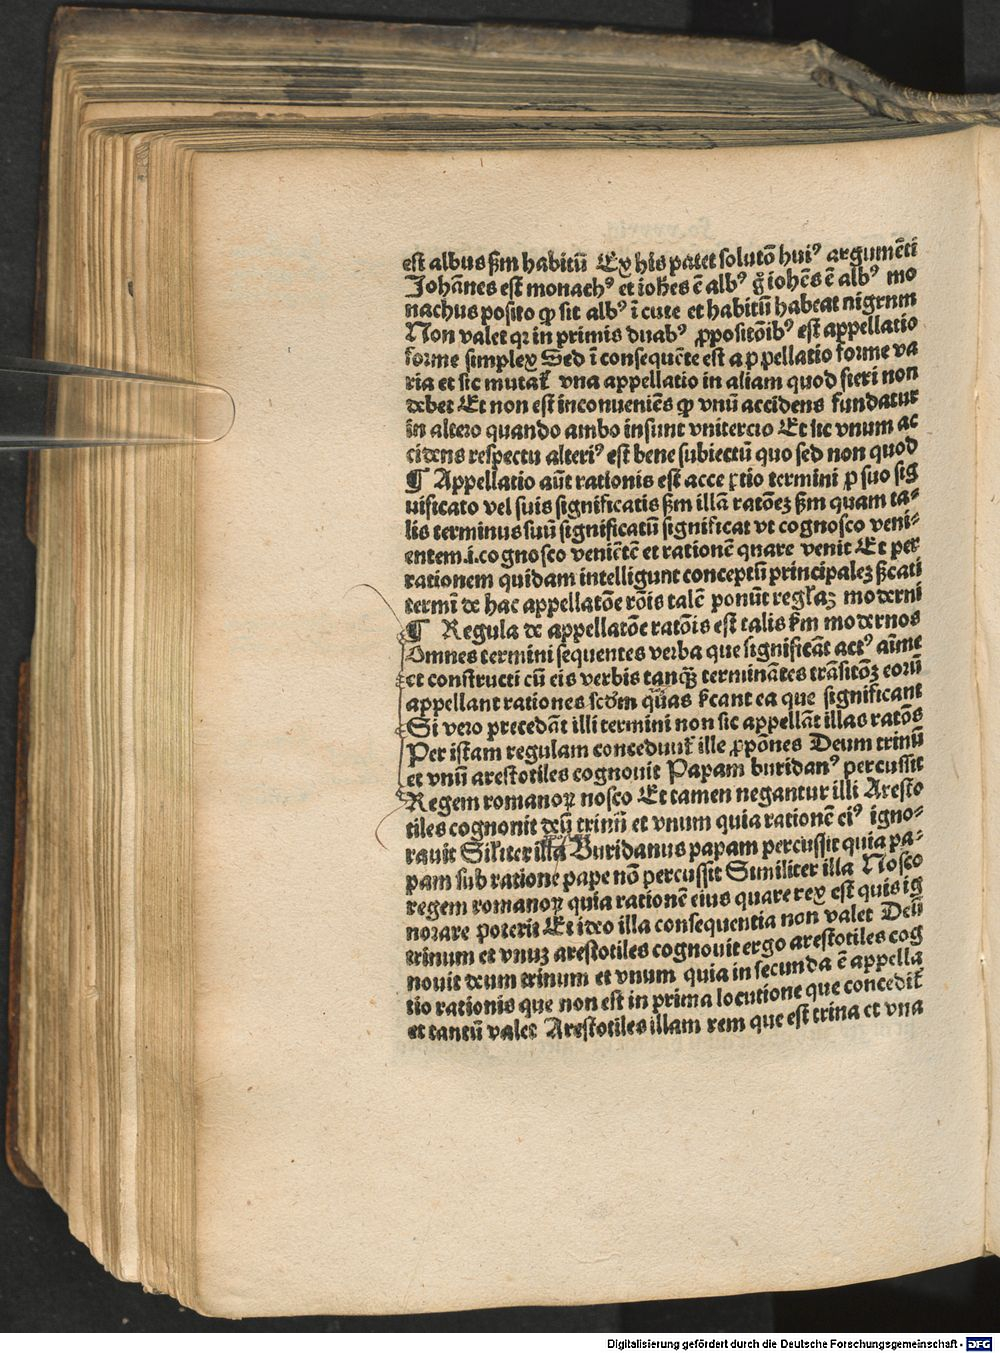 est albus ẜm habitū Ex his patet solutō huiꝰ argumēti
Johānes est monachꝰ et ioh̄es ē albꝰ g̊ iohēs ē albꝰ mo
nachus posito ꝙ sit albꝰ ī cute et habitū habeat nigrum
Non valet qꝛ in primis duabꝰ ꝓpositōibꝰ est appellatio
forme simplex Sed ī consequēte est a p pellatio forme va
ria et sic mutat᷑ vna appellatio in aliam quod fieri non
debet Et non est inconueniēs ꝙ vnū accidens fundatur
in altero quando ambo insunt vnitercio Et sic vnum ac
cidens respectu alteriꝰ est bene subiectū quo sed non quod
¶ Appellatio aūt rationis est acce ꝑtio termini ꝓ suo sig
nificato vel suis significatis ẜm illā ratōeꝫ ẜm quam ta⸗
lis terminus suū significatū significat vt cognosco veni⸗
entem.i.cognosco veniētē et rationē quare venit Et per
rationem quidam intelligunt conceptū principaleꝫ ẜcati
termī de hac appellatōe rōis talē ponūt regl̄aꝫ moderni
¶ Regula de appellatōe ratōis est talis ẜm modernos
Omnes termini sequentes verba que significāt actꝰ aīme
et constructi cū eis verbis tanqꝫ̄ terminātes trāsitōꝫ eorū
appellant rationes scd̄m quas ẜcant ea que significant
Si vero precedāt illi termini non sic appellāt illas ratōs
Per istam regulam concedunt᷑ ille ꝓpōnes Deum trinū
et vnū arestotiles cognouit Papam buridanꝰ percussit
Regem romanoꝝ nosco Et tamen negantur illi Aresto
tiles cognouit deū trinū et vnum quia rationē eiꝰ igno⸗
rauit Sil̄iter illa Buridanus papam percussit quia pa⸗
pam sub ratione pape nō percussit Similiter illa Nosco
regem romanoꝝ quia rationē eius quare rex est quis ig
norare poterit Et ideo illa consequentia non valet Deū
trinum et vnuꝫ arestotiles cognouit ergo arestotiles cog
nouit deum trinum et vnum quia in secunda ē appella
tio rationis que non est in prima locutione que concedit᷑
et tantū valet Arestotiles illam rem que est trina et vna
Digitalisierung gefördert durch die Deutsche Forschungsgemeinschaft - DFG